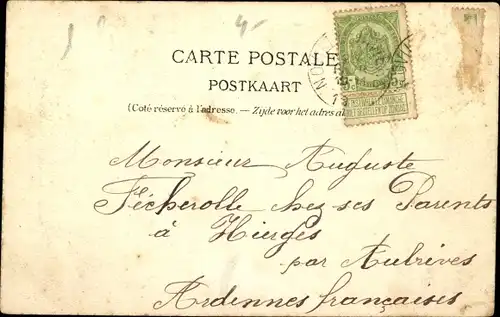 4-
CARTE POSTALE
POSTKAART
(Côté réservé à l'adresse. — Zijde voor het adres
Monsieur Auguste
Fécherolle chez ses Parents
à Hierges
par Aubrives
Ardennes françaises